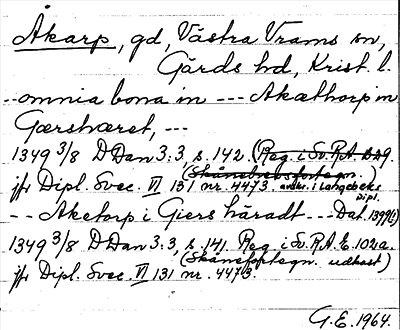 Åkarp, gd, Västra Vrams sn,
Gärds hd, Krist. l.
-- omnia bona in --- Akæthorp in
Gærshæret, ---
1349 3/8 D Dan 3:3, s. 142. (Reg. i Sv. R.A.
(Skånebrevsfortegn.)
jfr Dipl. Svec. VI 131 nr. 4473. avskr. i Langebeks
Dipl.
-- Aketorp i Giers häradt --- Dat. 1399(!)
1349 3/8 D Dan 3:3, s. 141. Reg i Sv. R.A. E. 102a.
(Skånefortegn. udkast)
jfr Dipl. Svec. VI 131 nr. 4473.
G.E. 1964.